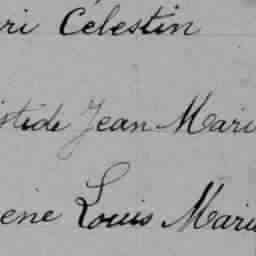 ri Célestin
istide Jean Mari
ène Louis Mari